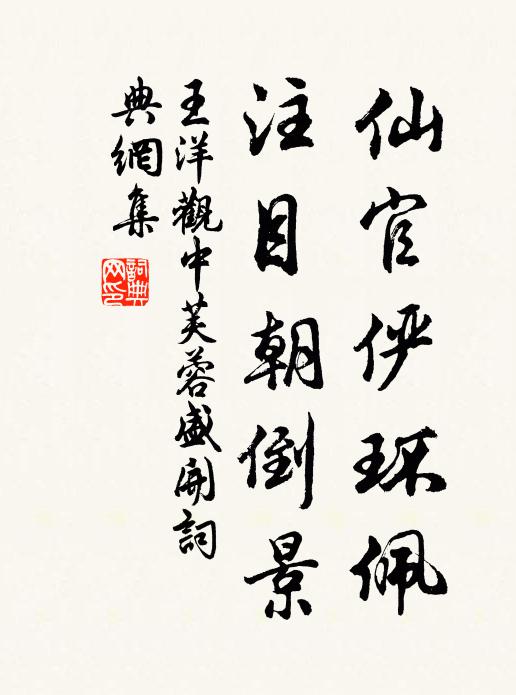 仙官俨环佩
注目朝倒景
王洋觀中芙蓉盛開詞
典網集
詞典網印